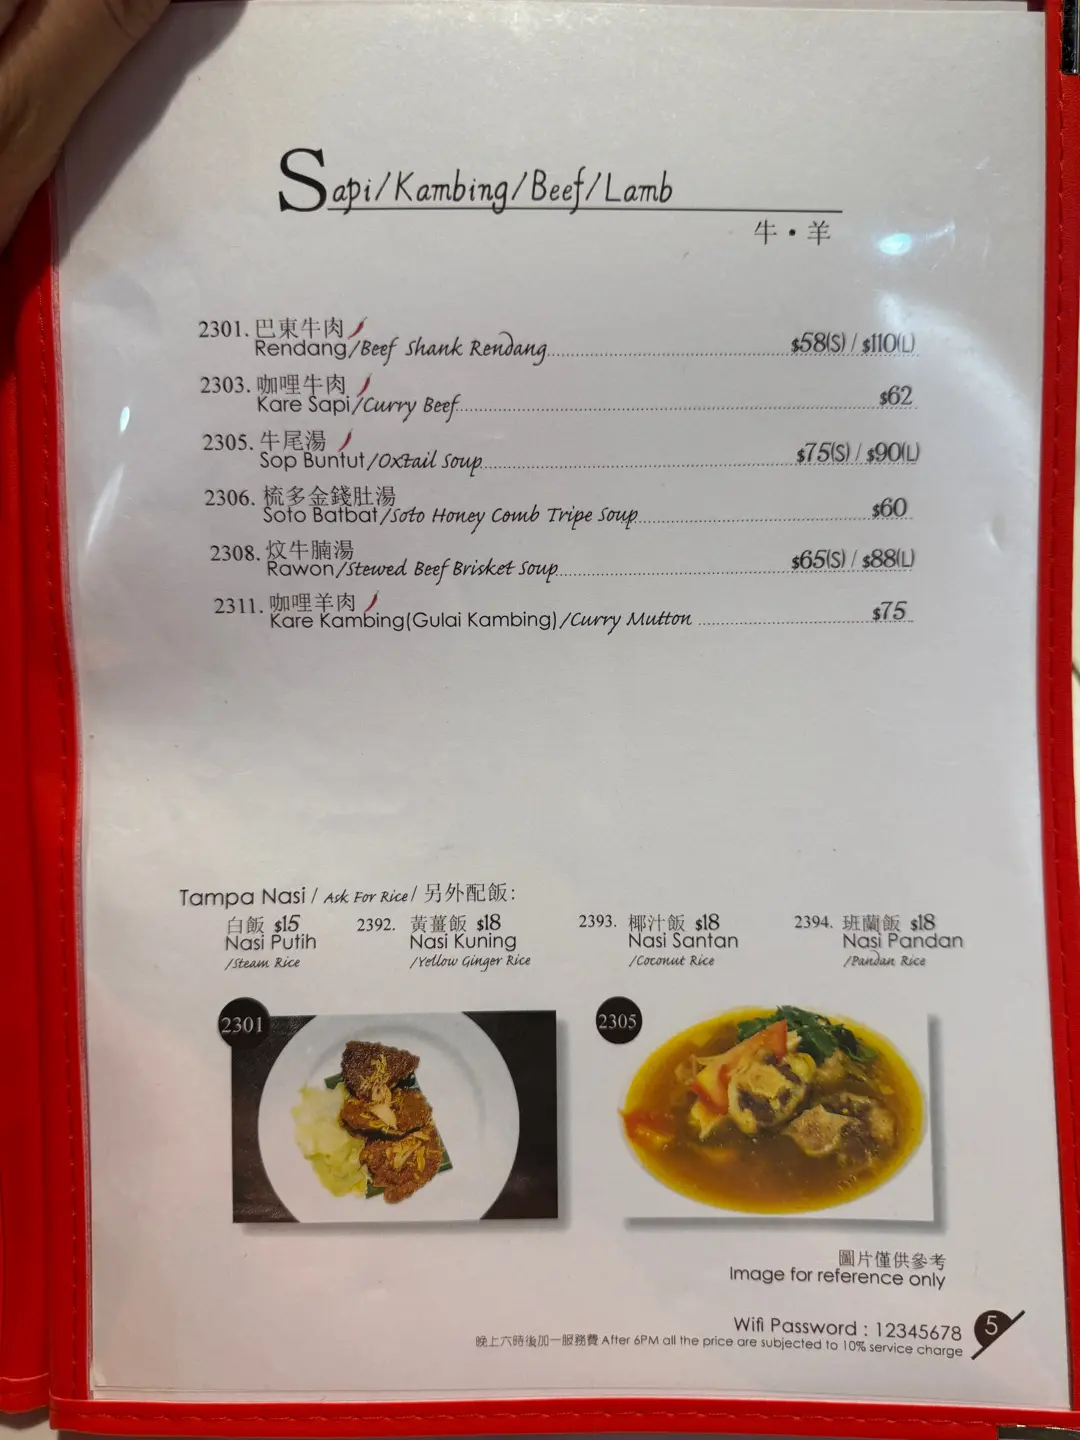 Sapi/Kambing/Beef/Lamb
牛・羊
2301. 巴東牛肉
Rendang/Beef Shank Rendang $58(S) / $110(L)
2303. 咖哩牛肉
Kare Sapi/Curry Beef $62
2305. 牛尾湯
Sop Buntut/Oxtail Soup $75(S) / $90(L)
2306. 梳多金錢肚湯
Soto Batbat/Soto Honey Comb Tripe Soup $60
2308. 炆牛腩湯
Rawon/Stewed Beef Brisket Soup $65(S) / $88(L)
2311. 咖哩羊肉
Kare Kambing(Gulai Kambing)/Curry Mutton $75
Tampa Nasi / Ask For Rice / 另外配飯:
白飯 $15 2392. 黃薑飯 $18 2393. 椰汁飯 $18 2394. 班蘭飯 $18
Nasi Putih Nasi Kuning Nasi Santan Nasi Pandan
/Steam Rice /Yellow Ginger Rice /Coconut Rice /Pandan Rice
2301 2305
圖片僅供參考
Image for reference only
Wifi Password : 12345678 5
晚上六時後加一服務費 After 6PM all the price are subjected to 10% service charge